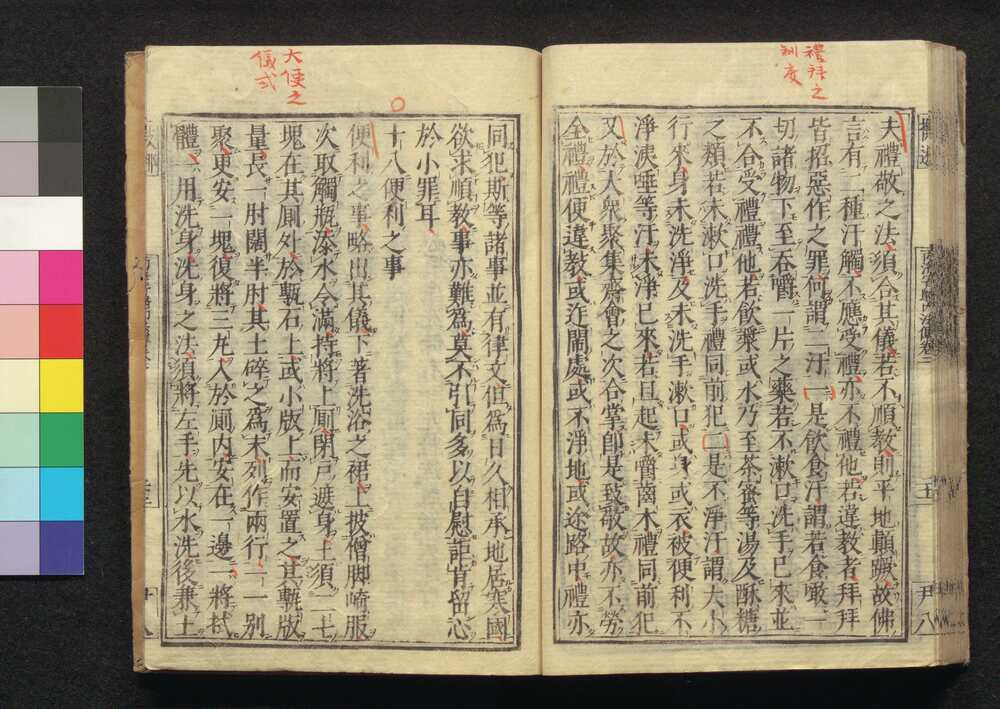 禮拜之
制度
夫禮敬之法須合其儀若不順教則平地顛蹶故佛
言有二種汗觸不應受禮亦不禮他若違教者拜拜
皆招惡作之罪何謂二汗一是飲食汗謂若食噉一
切諸物下至吞嚼一片之藥若不漱口洗手已來並
不合受禮禮他若飲漿或水乃至茶蜜等湯及酥糖
之類若未漱口洗手禮同前犯二是不淨汗謂大小
行來身未洗淨及未洗手漱口或身或衣被便利不
淨洟唾等汗未淨已來若旦起未嚼齒木禮同前犯
又於大衆聚集齋會之次合掌卽是致敬故亦不勞
全禮禮便違教或迮鬧處或不淨地或途路中禮亦
大便之
儀式
同犯斯等諸事並有律文但爲日久相承地居寒國
欲求順教事亦難爲莫不引同多以自慰詎肯留心
於小罪耳
十八便利之事
便利之事略出其儀下著洗浴之裙上披僧脚崎服
次取觸瓶添水令滿持將上厠閉戶遮身土須二七
塊在其厠外於甎石上或小版上而安置之其甎版
量長一肘闊半肘其土碎之爲末列作兩行一一別
聚更安一塊復將三丸入於厠內安在一邊一將拭
體一用洗身洗身之法須將左手先以水洗後兼土